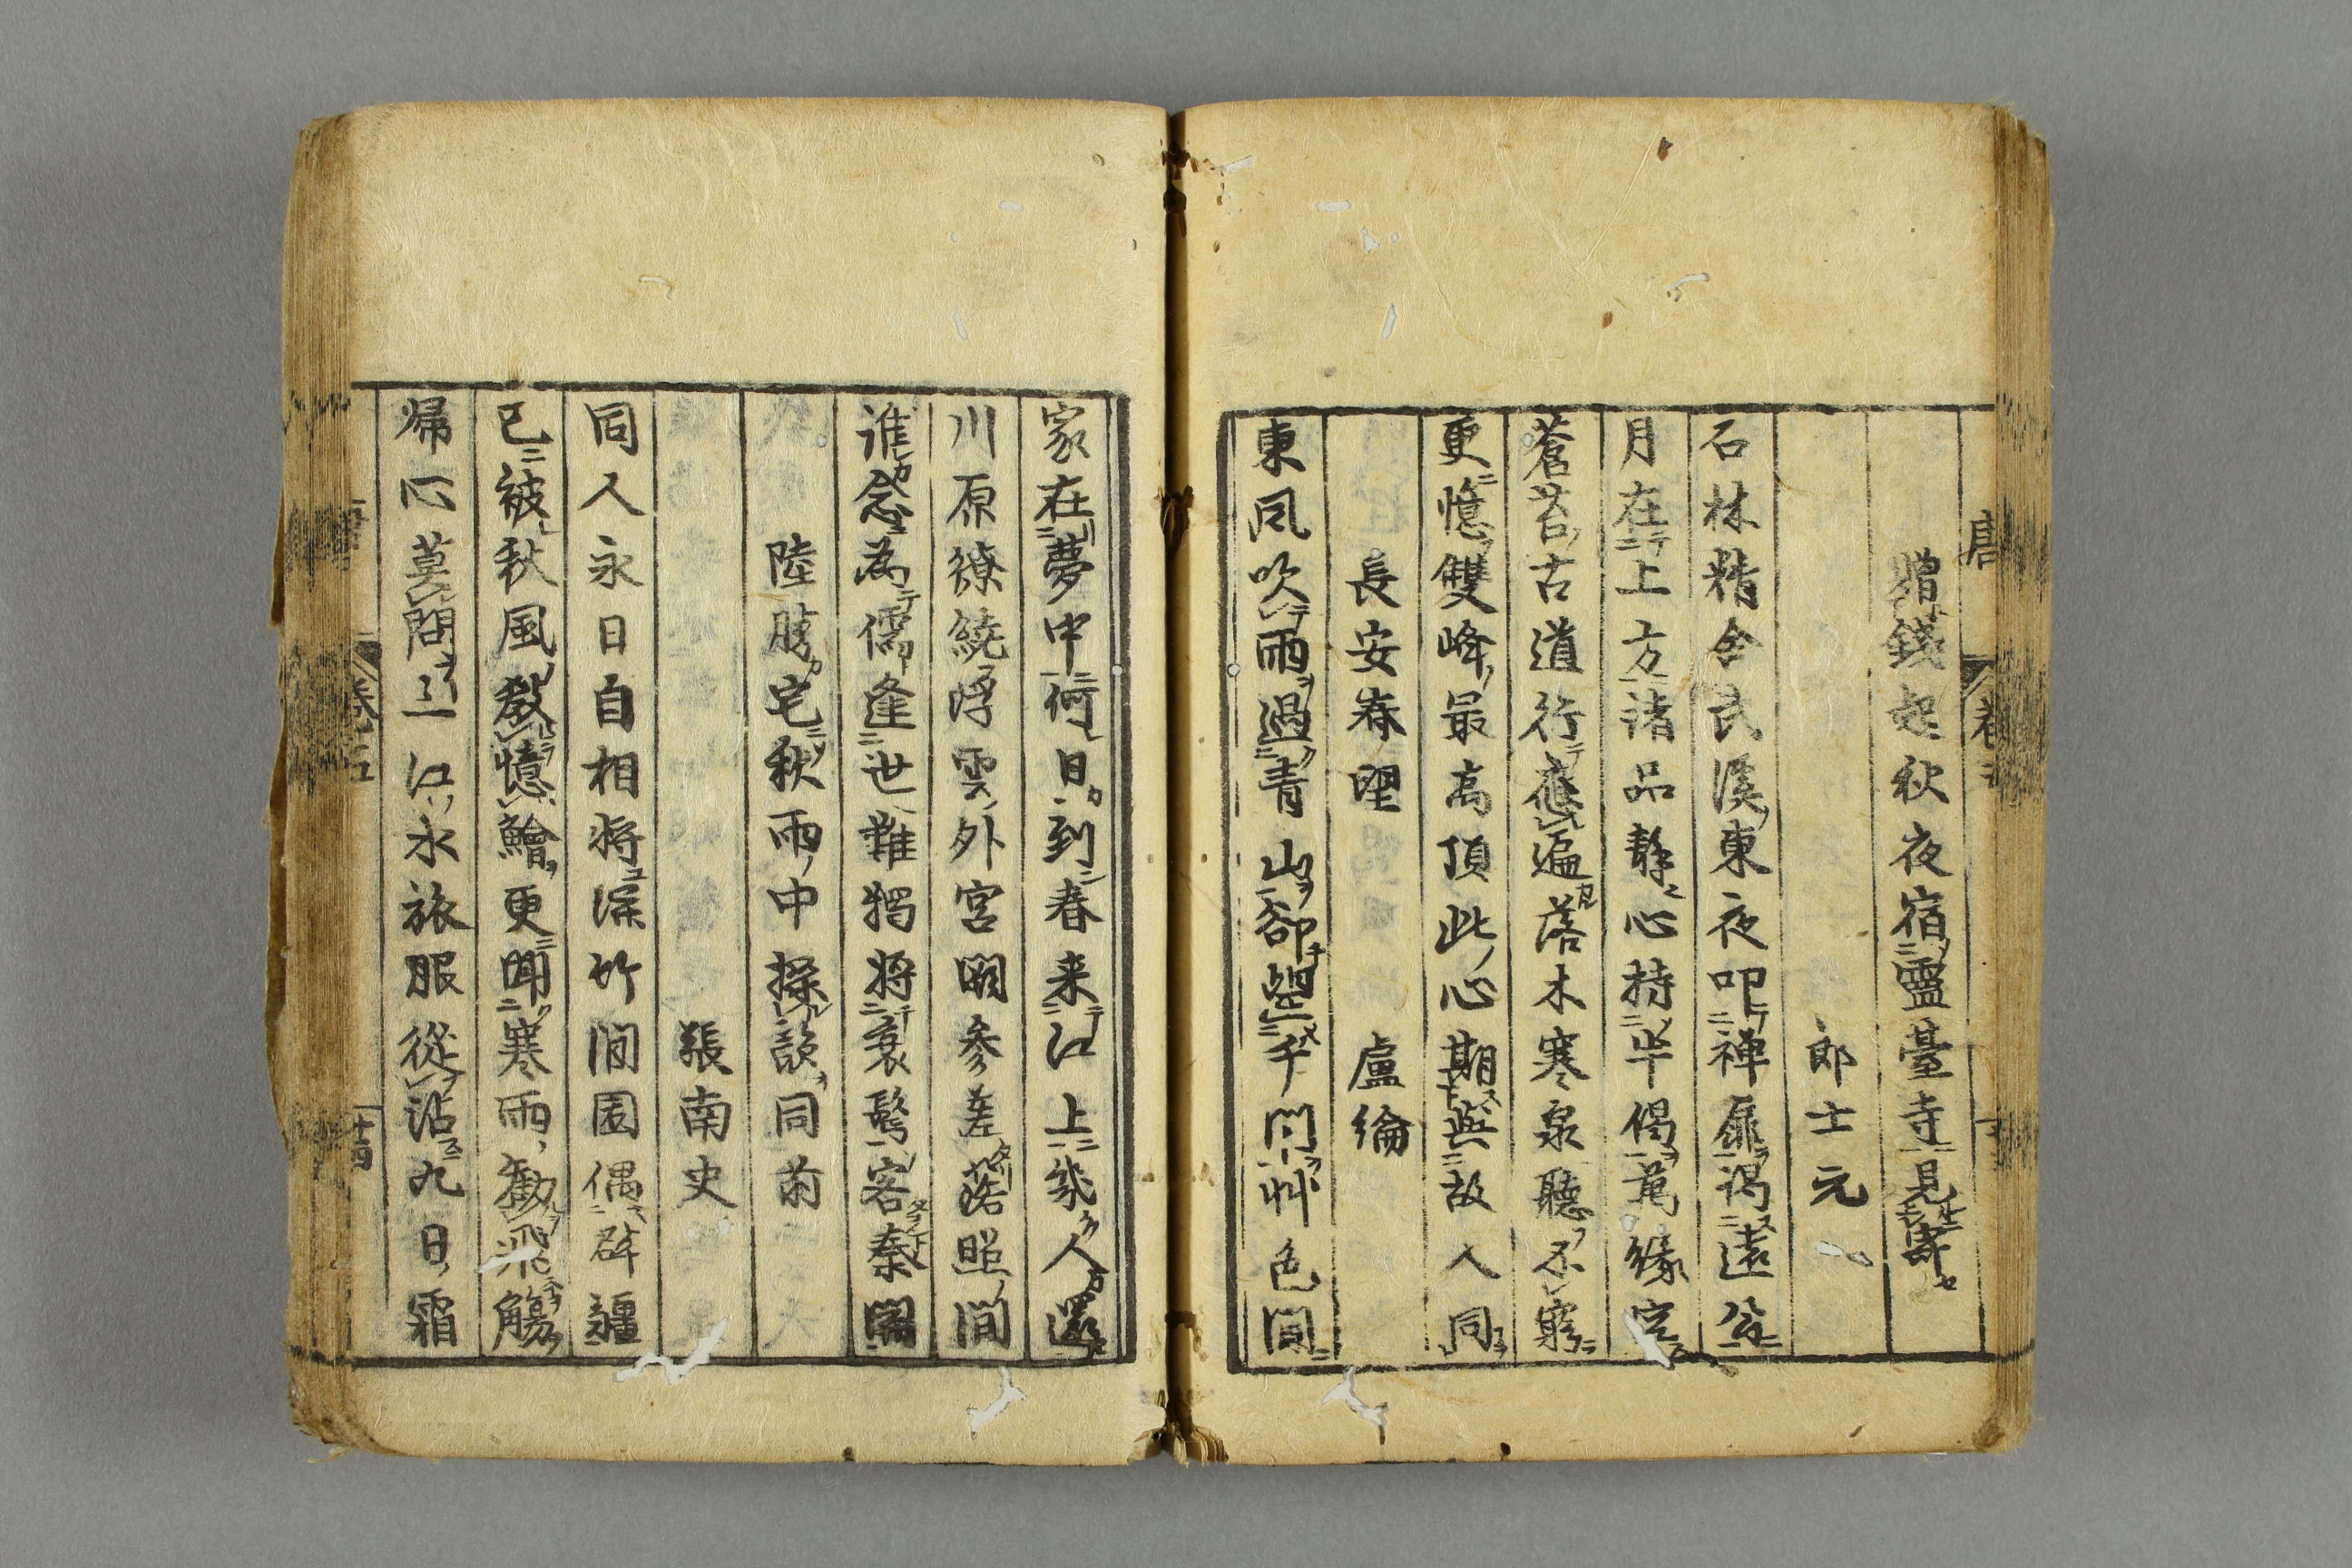 贈錢起秋夜宿靈臺寺見寄
郎士元
石林精舍武溪東夜叩禅扉謁遠公
月在上方諸品静心持半偈萬縁空
蒼苔古道行應遍落木寒泉聽不窮
更憶雙峰最高頂此心期與故人同
長安春望　盧綸
東風吹雨過青山卻望千門艸色間
家在夢中何日到春来江上幾人還
川原繚繞浮雲外宮闕參差落照間
誰念為儒逢世難獨将衰鬂客秦関
陸勝宅秋雨中探韻同前
張南史
同人永日自相将深竹間園偶辟疆
已被秋風教憶鱠更聞寒雨勸飛觴
帰心莫問三江水旅服從沾九日霜